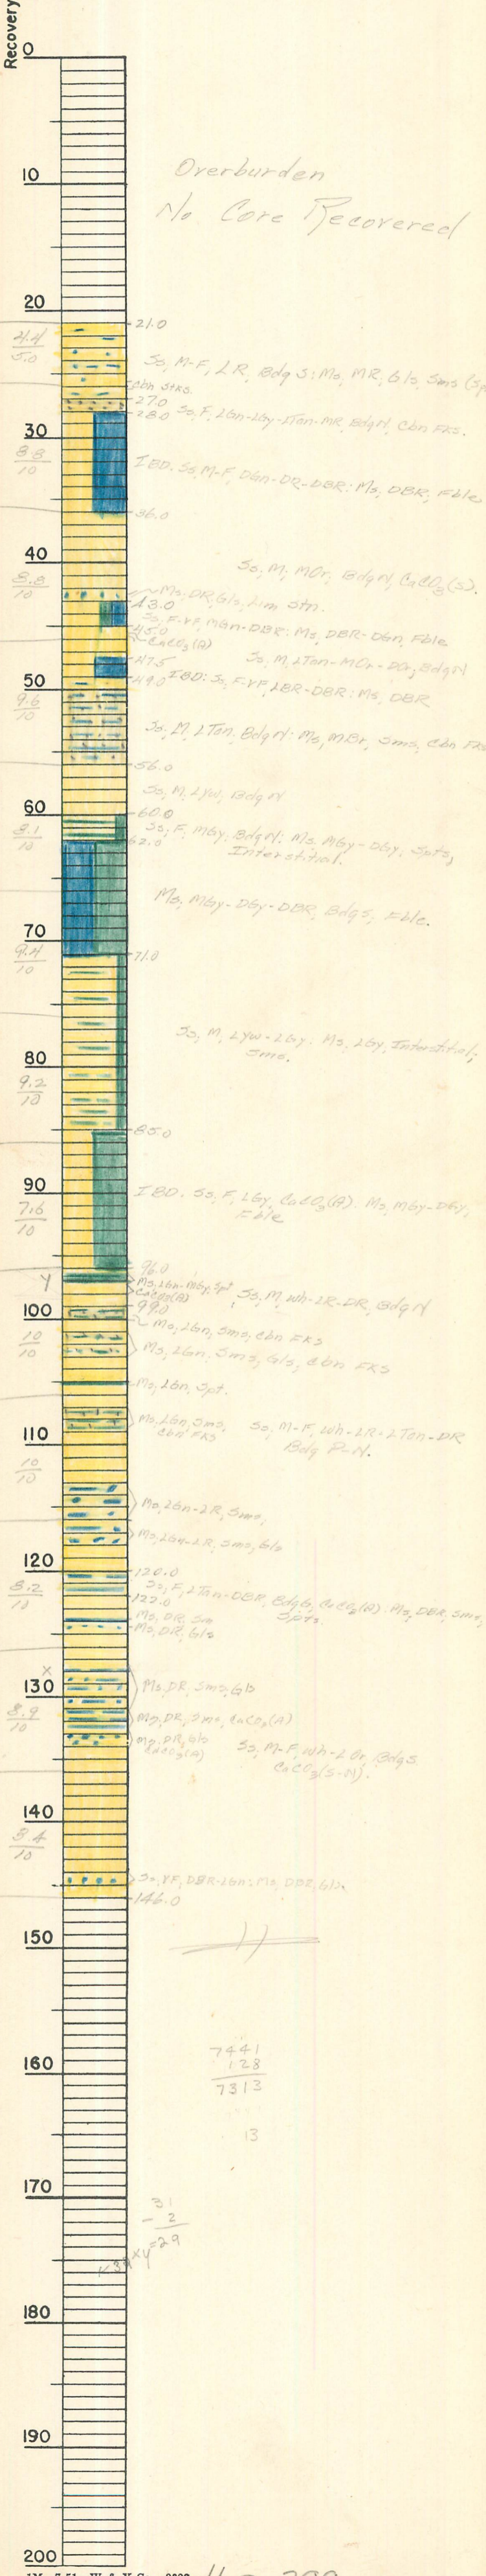 Recovery
0
10
Overburden
No Core Recovered
20
21.0
4.4
5.0
Ss, M-F, LR, Bdg S: Ms, MR, Gls, Sms (Sp
Cbn Stks.
27.0
28.0 Ss, F, LGn-LGy-LTan-MR, Bdg N, Cbn Fks.
30
8.8
10
IBD: Ss, M-F, DGn-DR-DBR: Ms, DBR, Fble
36.0
40
Ss, M, MOr, Bdg N, CaCO3(S).
8.8
10
Ms, DR, Gls, Lim Stn.
43.0
Ss, F-VF, MGn-DBR: Ms, DBR-DGn, Fble
45.0
CaCO3(A)
Ss, M, LTan-MOr-DOr, Bdg N
47.5
49.0 IBD: Ss, F-VF, LBR-DBR: Ms, DBR
50
9.6
10
Ss, M, LTan, Bdg N: Ms, MBr, Sms, Cbn Fks
56.0
Ss, M, LYw, Bdg N
60
60.0
8.1
10
Ss, F, MGy, Bdg N: Ms, MGy-DGy, Spts,
Interstitial.
62.0
Ms, MGy-DGy-DBR, Bdg S, Fble.
70
71.0
9.4
10
Ss, M, LYw-LGy: Ms, LGy, Interstitial,
Sms.
80
9.2
10
85.0
90
7.6
10
IBD. Ss, F, LGy, CaCO3(A). Ms, MGy-DGy,
Fble
96.0
Y
Ms, LGn-MGy, Spt
CaCO3(A)
Ss, M, Wh-LR-DR, Bdg N
99.0
100
Ms, LGn, Sms, Cbn FKS
10
10
Ms, LGn, Sms, Gls, Cbn FKS
Ms, LGn, Spt.
Ms, LGn, Sms,
Cbn FKS
Ss, M-F, Wh-LR-LTan-DR
Bdg P-N.
110
10
10
Ms, LGn-LR, Sms,
Ms, LGn-LR, Sms, Gls
120
120.0
8.2
10
Ss, F, LTan-DBR, Bdg G, CaCO3(A). Ms, DBR, Sms,
Spts.
122.0
Ms, DR, Sm
Ms, DR, Gls
X
130
Ms, DR, Sms, Gls
8.9
10
Ms, DR, Sms, CaCO3(A)
Ms, DR, Gls
CaCO3(A)
Ss, M-F, Wh-LOr, Bdg S
CaCO3(S-N).
140
8.4
10
Ss, VF, DBR-LGn: Ms, DBR, Gls.
146.0
150
7441
128
7313
160
13
170
31
- 2
= 29
180
190
200